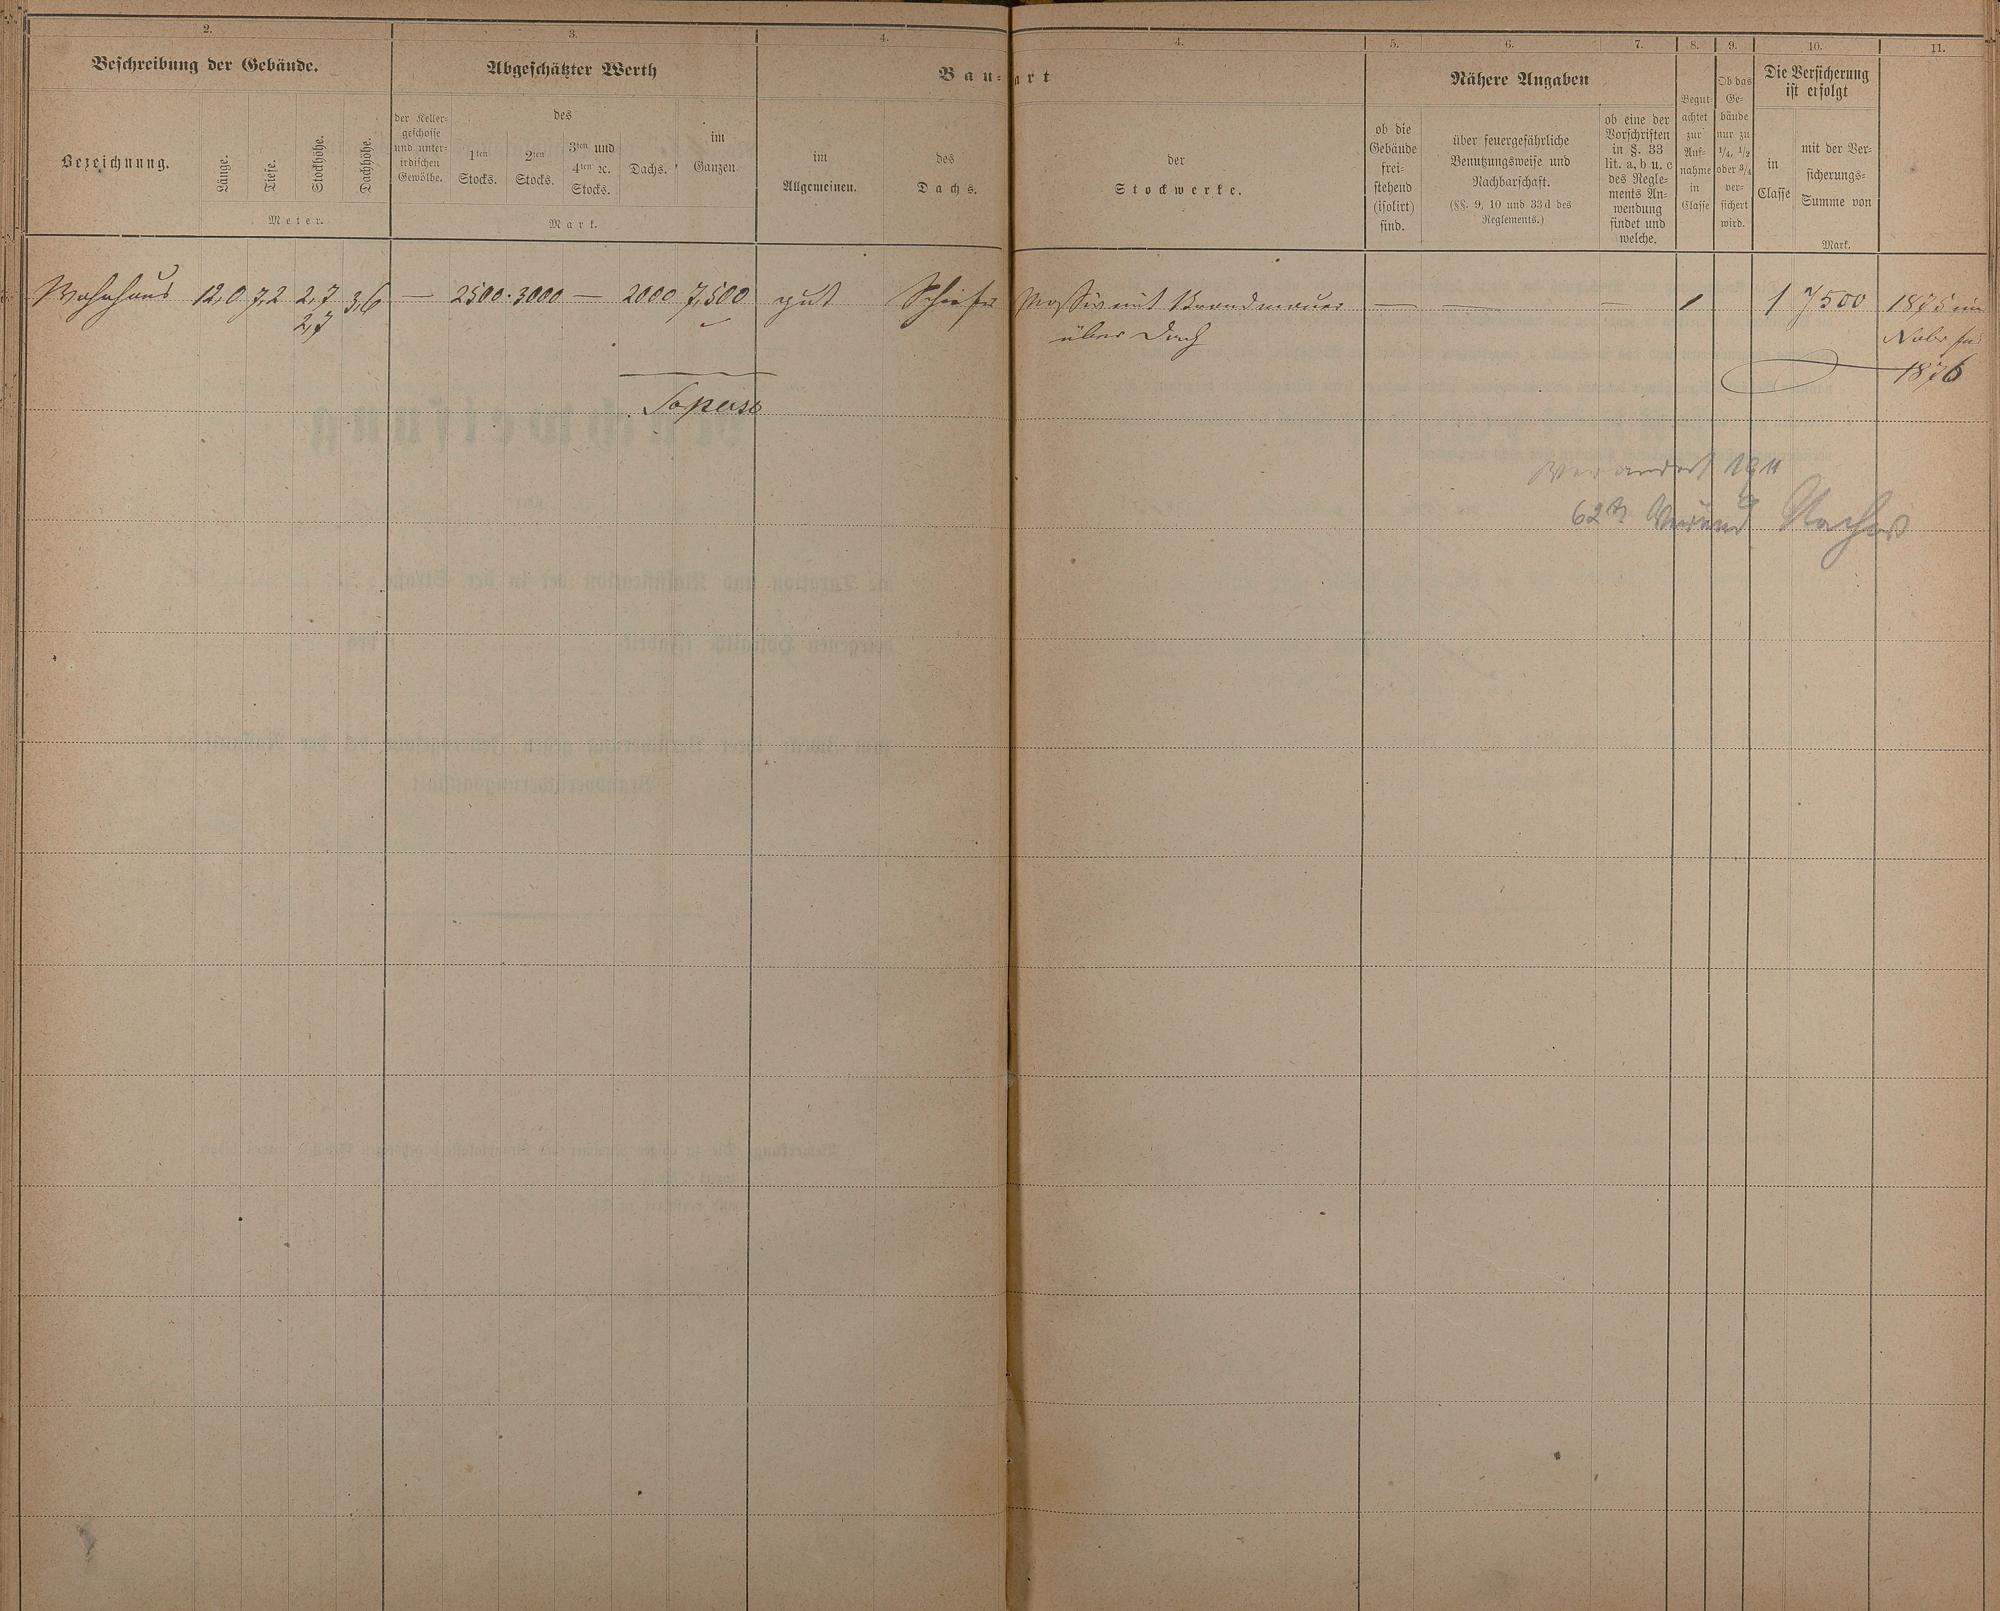 2.
Beschreibung der Gebäude.
Bezeichnung.
Länge.
Tiefe.
Stockhöhe.
Dachhöhe.
Meter.
3.
Abgeschätzter Werth
der Keller-
geschosse
und unter-
irdischen
Gewölbe.
des
1ten
Stocks.
2ten
Stocks.
3ten und
4ten ꝛc.
Stocks.
Dachs.
im
Ganzen
Mark.
4.
4.
Bau-art
im
Allgemeinen.
des
Dachs.
der
Stockwerke.
5.
6.
7.
Nähere Angaben
ob die
Gebäude
frei-
stehend
(isolirt)
sind.
über feuergefährliche
Benutzungsweise und
Nachbarschaft.
(§§. 9, 10 und 33d des
Reglements.)
ob eine der
Vorschriften
in §. 33
lit. a, b u. c
des Regle-
ments An-
wendung
findet und
welche.
8.
Begut-
achtet
zur
Auf-
nahme
in
Classe
9.
Ob das
Ge-
bäude
nur zu
1/4, 1/2
oder 3/4
ver-
sichert
wird.
10.
Die Versicherung
ist erfolgt
in
Classe
mit der Ver-
sicherungs-
Summe von
Mark.
11.
Wohnhaus 12,0 7,2 2,7 3,6 — 2500. 3000 — 2000 7,500 gut Schiefer Massiv mit Brandmauer — — — 1 1 7500 1875 im
2,7 über Dach
1876
verändert 1911